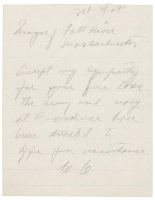 Feb 3 28
Mayor Fall River
Massachusetts
Accept my sympathy
for your fire loss
The army and navy
at Providence have
been directed to
offer you assistance
C C